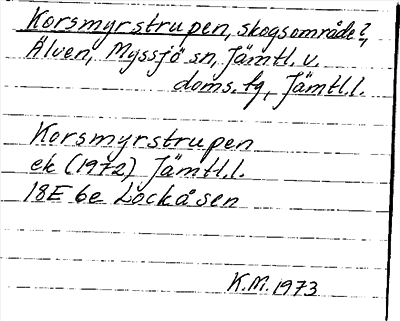 Korsmyrstrupen, skogsområde?,
Älven, Myssjö sn, Jämtl. v.
doms. tg, Jämtl. l.
Korsmyrstrupen
ek (1972) Jämtl. l.
18E 6e Lockåsen
K.M. 1973